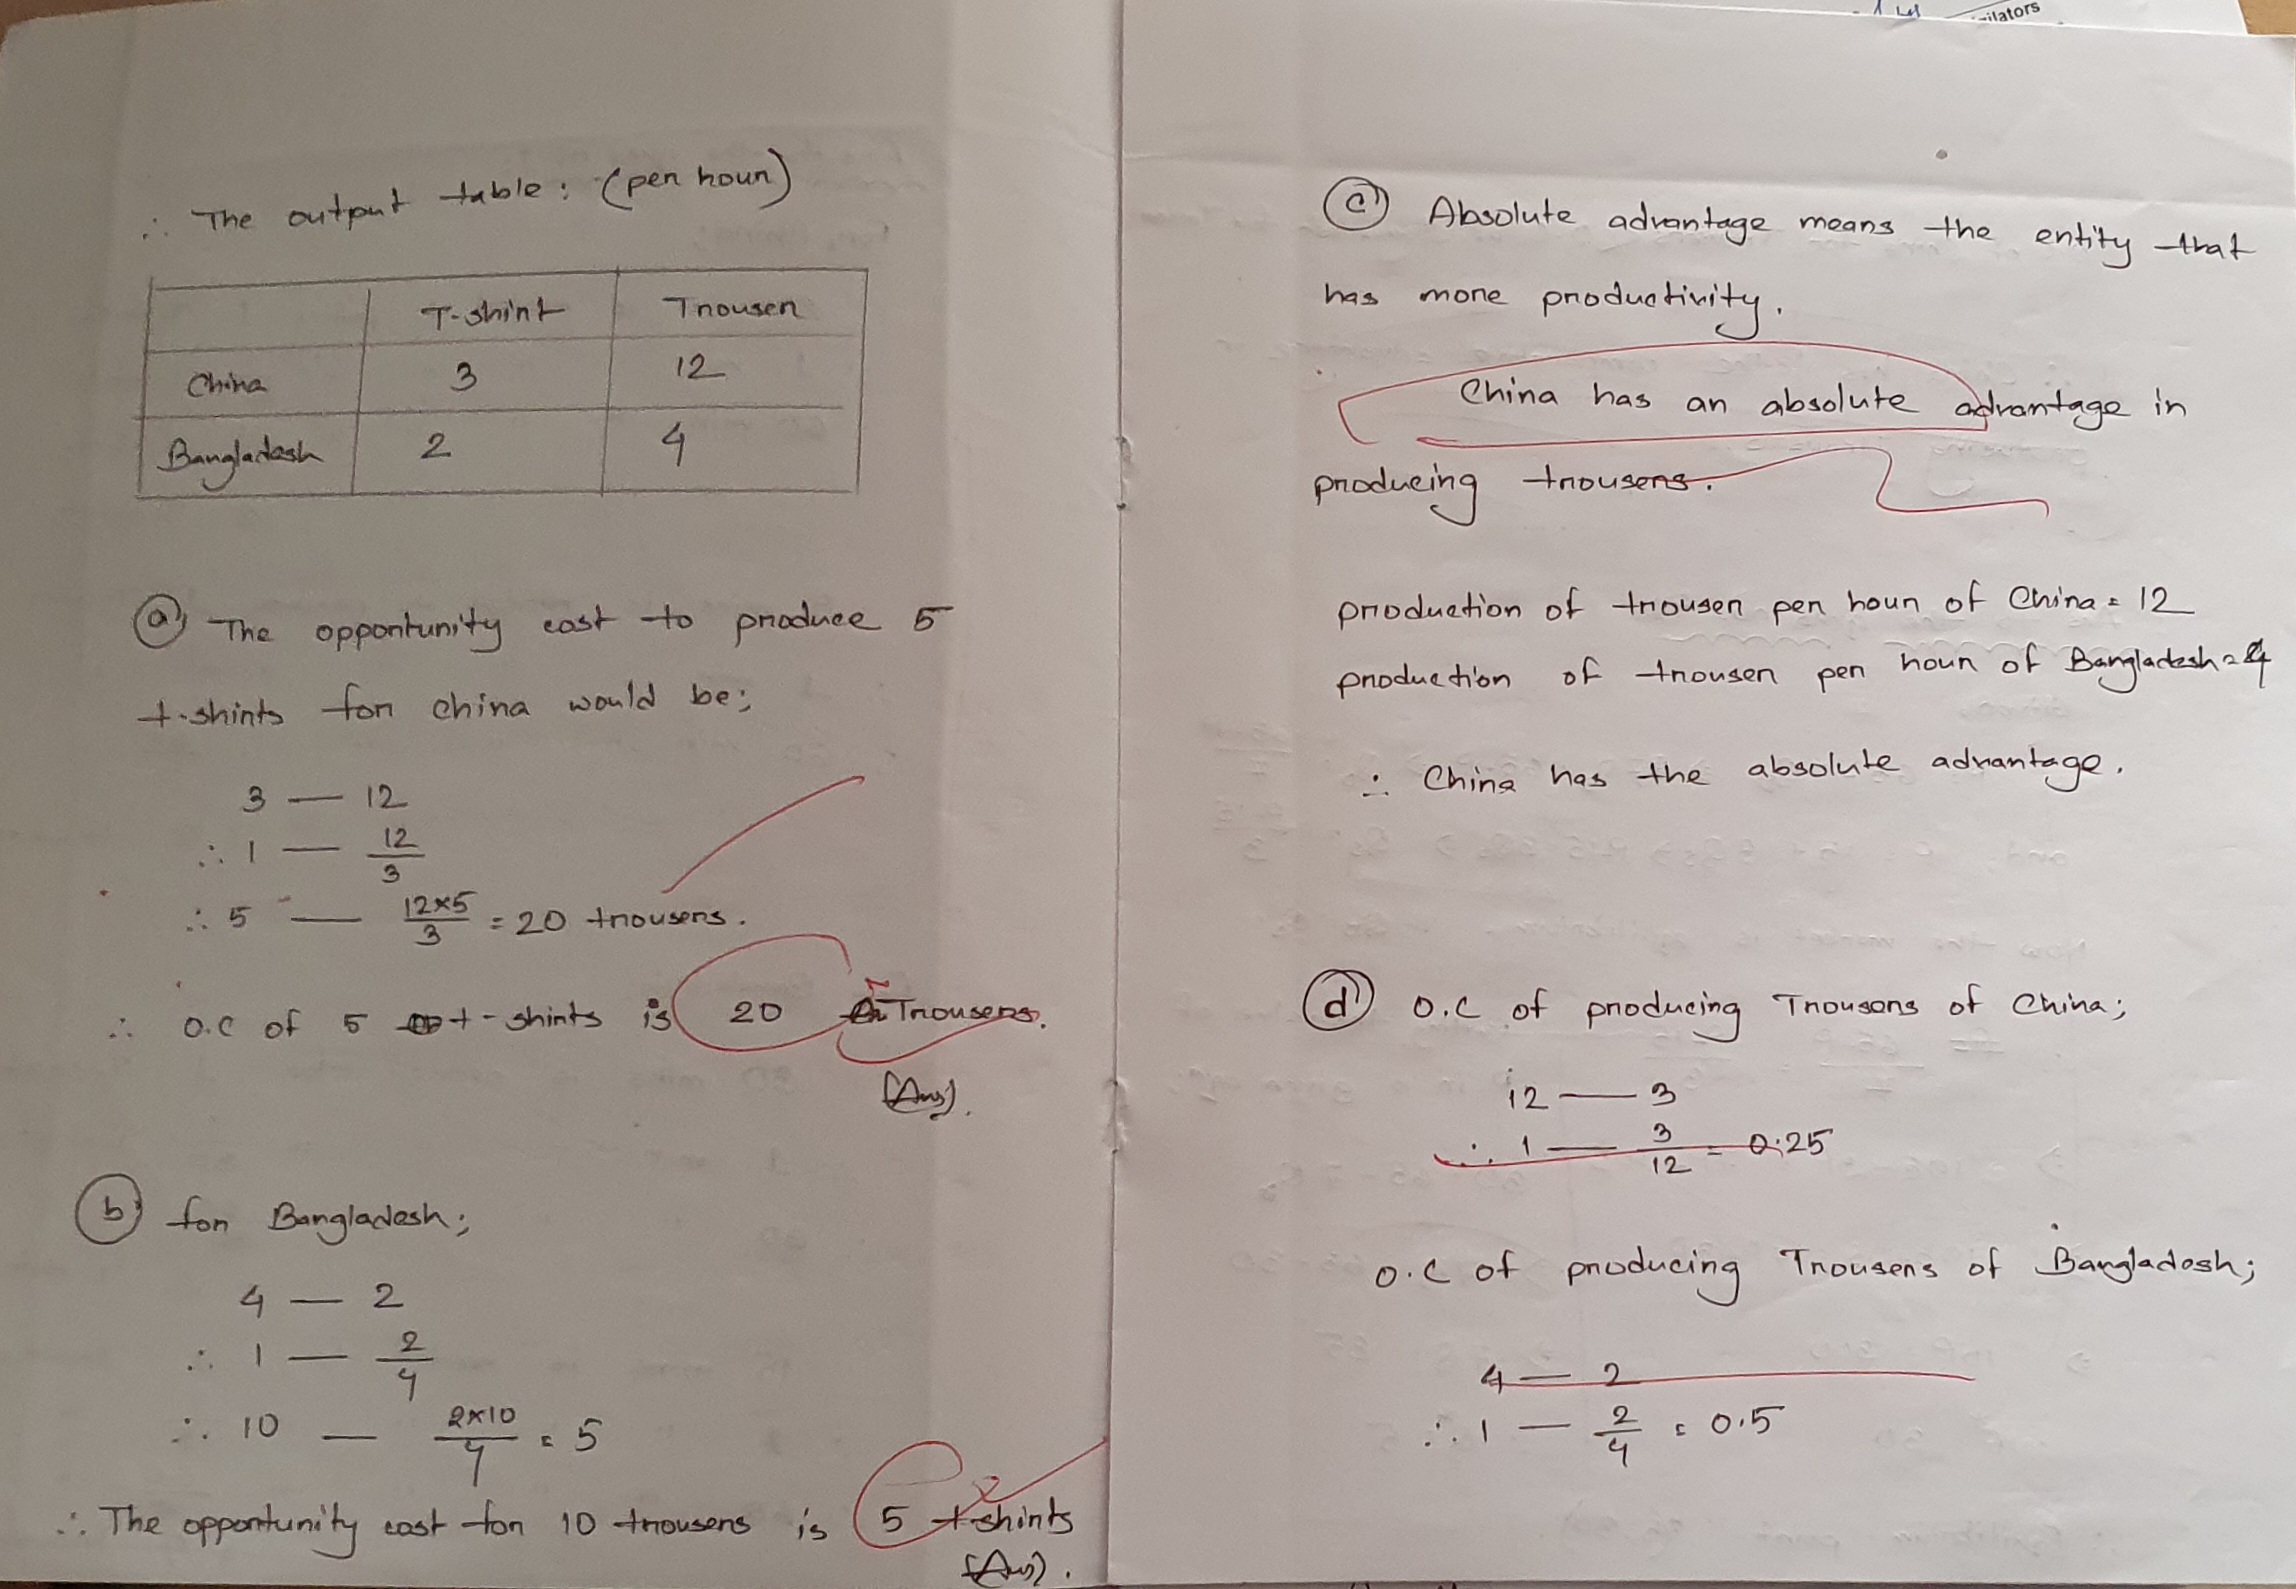 ∴ The output table: (per hour)
T-shirt Trouser
China 3 12
Bangladesh 2 4
(a) The opportunity cost to produce 5
t-shirts for china would be;
3 — 12
∴ 1 — 12/3
∴ 5 — 12×5/3 = 20 trousers.
∴ O.C of 5 t-shirts is 20 Trousers.
(Ans).
(b) for Bangladesh;
4 — 2
∴ 1 — 2/4
∴ 10 — 2×10/4 = 5
∴ The opportunity cost for 10 trousers is 5 t-shirts
(Ans).
ilators
(c) Absolute advantage means the entity that
has more productivity.
China has an absolute advantage in
producing trousers.
production of trouser per hour of China = 12
production of trouser per hour of Bangladesh = 4
∴ China has the absolute advantage.
(d) O.C of producing Trousers of China;
12 — 3
∴ 1 — 3/12 = 0.25
O.C of producing Trousers of Bangladesh;
4 — 2
∴ 1 — 2/4 = 0.5